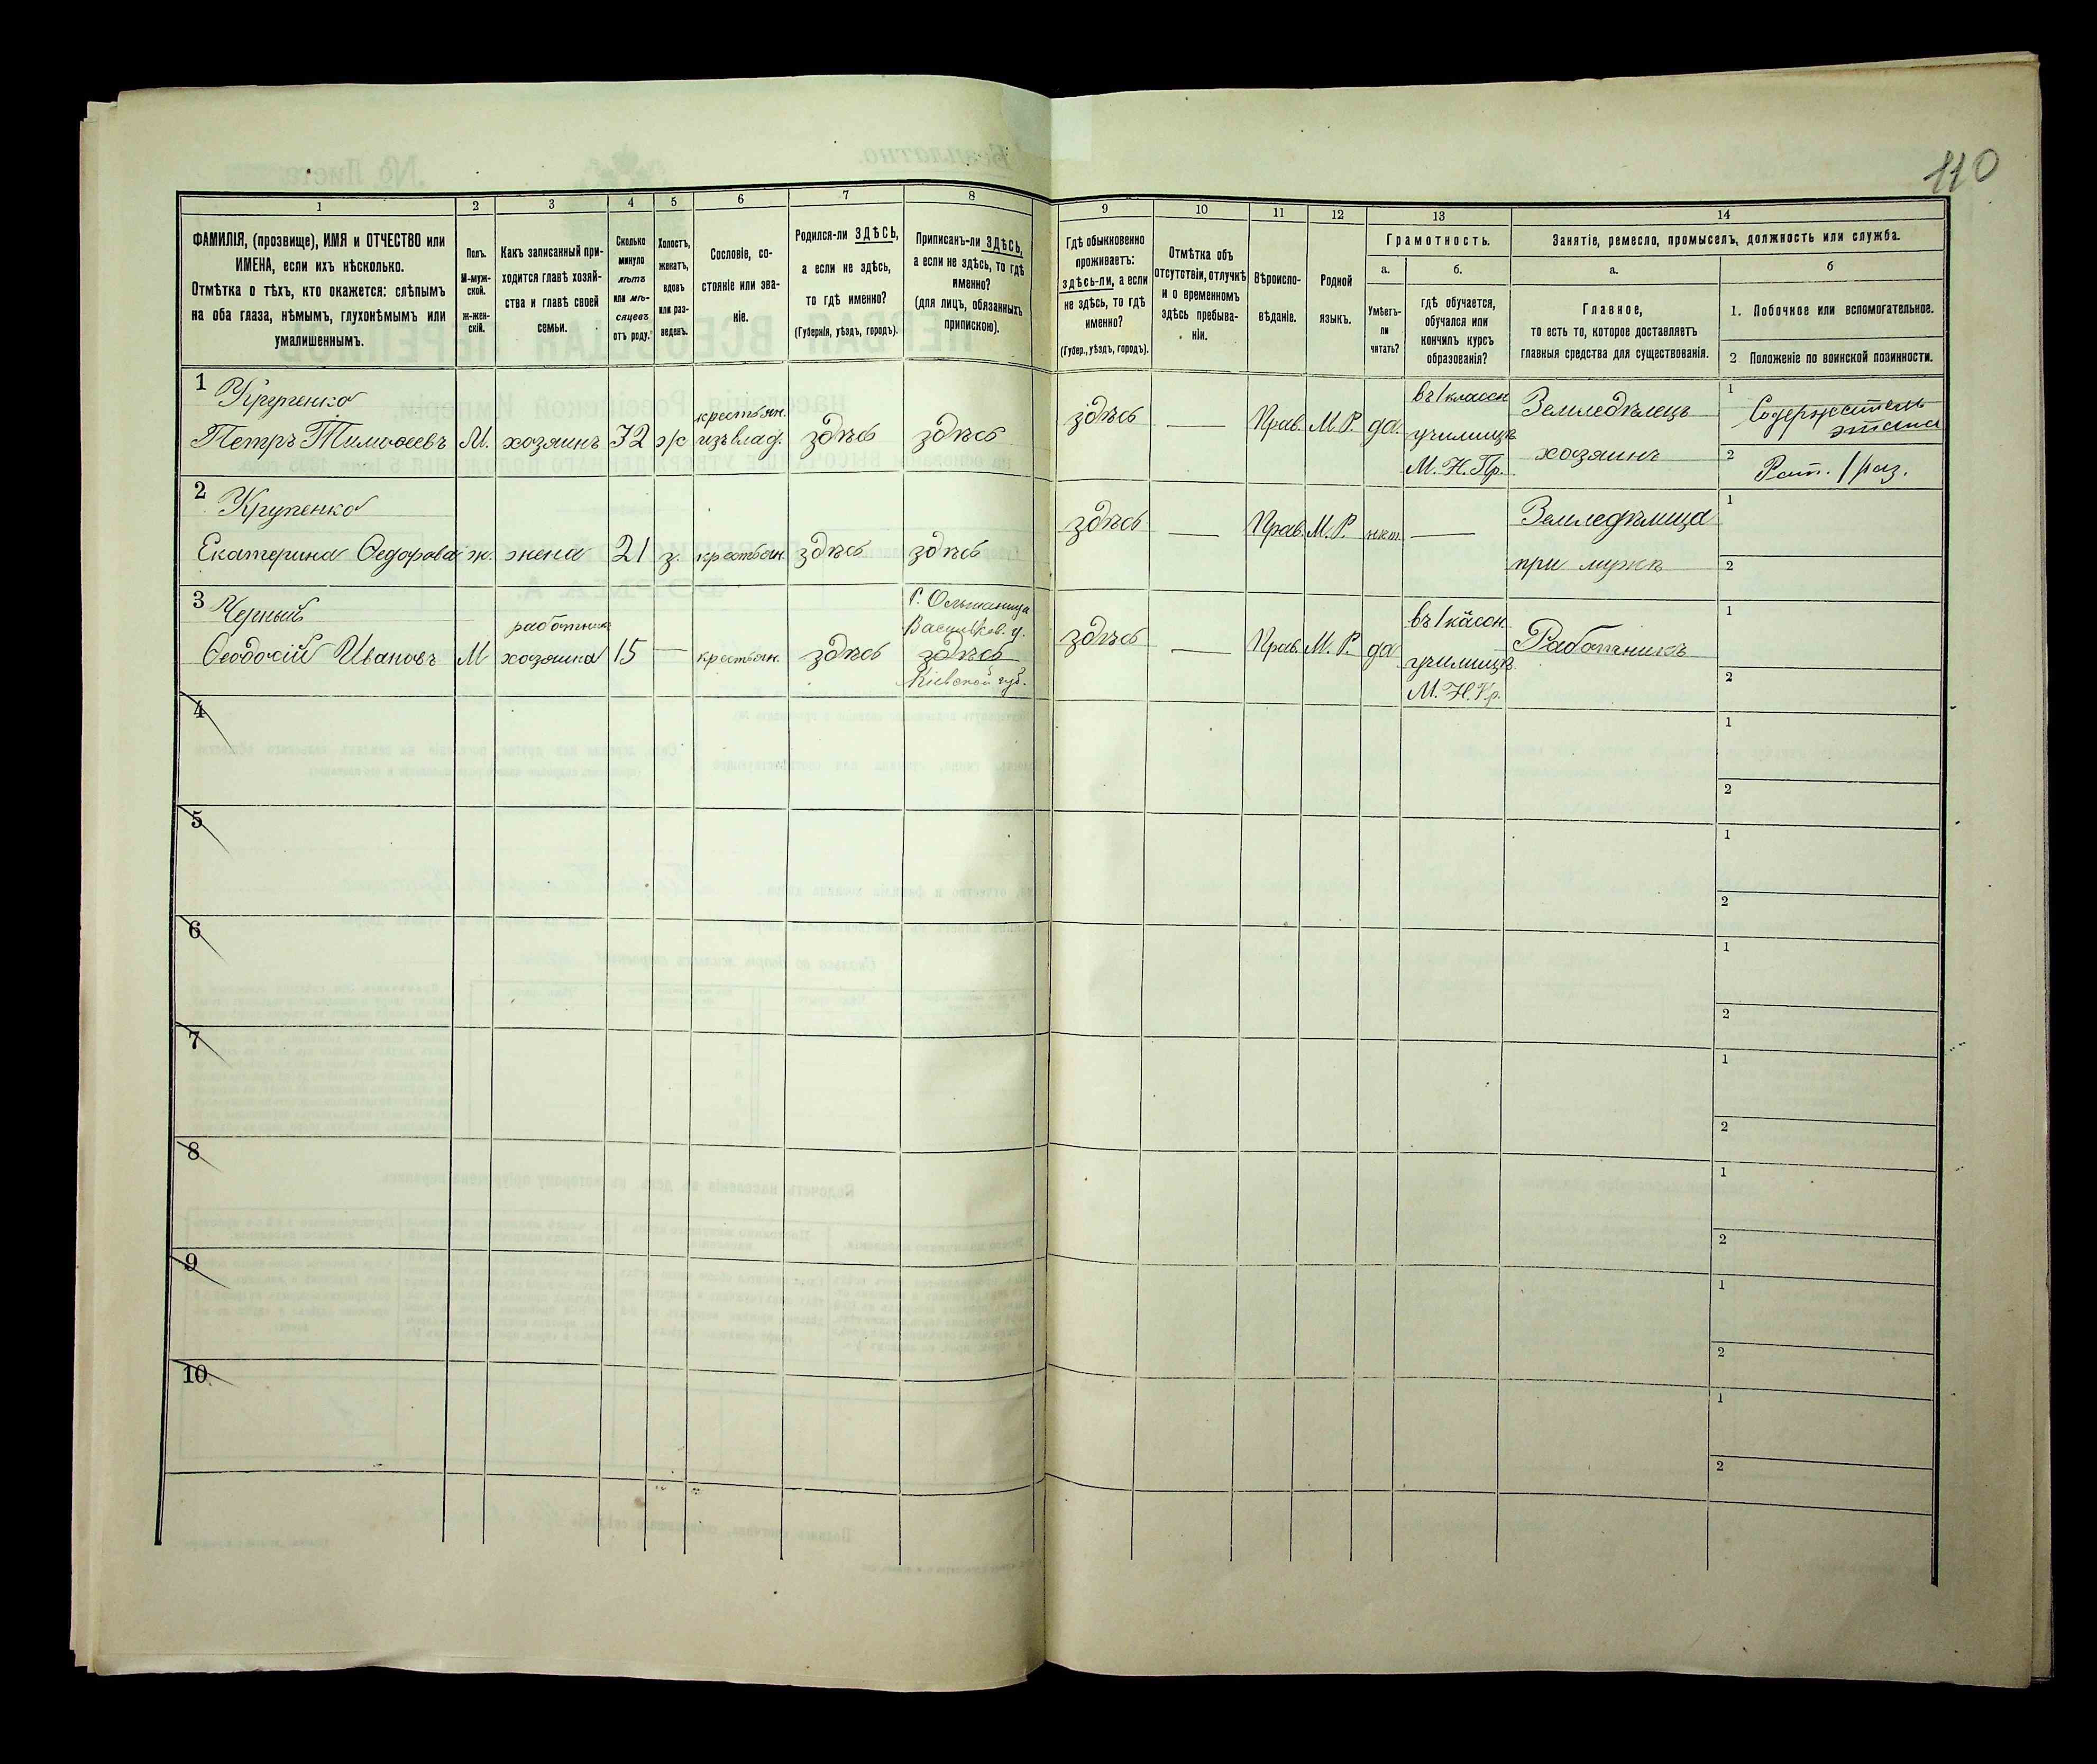 110
1
2
3
4
5
6
7
8
9
10
11
12
13
14
ФАМИЛІЯ, (прозвище), ИМЯ и ОТЧЕСТВО или
ИМЕНА, если ихъ нѣсколько.
Отмѣтка о тѣхъ, кто окажется: слѣпымъ
на оба глаза, нѣмымъ, глухонѣмымъ или
умалишеннымъ.
Полъ.
М-муж-
ской.
ж-жен-
скій.
Какъ записанный при-
ходится главѣ хозяй-
ства и главѣ своей
семьи.
Сколько
минуло
лѣтъ
или мѣ-
сяцевъ
отъ роду.
Холостъ,
женатъ,
вдовъ
или раз-
веденъ.
Сословіе, со-
стояніе или зва-
ніе.
Родился-ли ЗДѢСЬ,
а если не здѣсь,
то гдѣ именно?
(Губернія, уѣздъ, городъ).
Приписанъ-ли ЗДѢСЬ,
а если не здѣсь, то гдѣ
именно?
(для лицъ, обязанныхъ
припискою).
Гдѣ обыкновенно
проживаетъ:
здѣсь-ли, а если
не здѣсь, то гдѣ
именно?
(Губер., уѣздъ, городъ).
Отмѣтка объ
отсутствіи, отлучкѣ
и о временномъ
здѣсь пребыва-
ніи.
Вѣроиспо-
вѣданіе.
Родной
языкъ.
Грамотность.
а.
б.
Умѣетъ-
ли
читать?
гдѣ обучается,
обучался или
кончилъ курсъ
образованія?
Занятіе, ремесло, промыселъ, должность или служба.
а.
б
Главное,
то есть то, которое доставляетъ
главныя средства для существованія.
1. Побочное или вспомогательное.
2 Положеніе по воинской повинности.
1
Крупенко
Петръ Тимофеевъ
М.
хозяинъ
32
ж
крестьян.
изъ влад.
здѣсь
здѣсь
здѣсь
—
Прав.
М. Р.
да.
въ 1 классн
училищѣ
М. Н. Пр.
Земледѣлецъ
хозяинъ
1
Содержатель
этапа
2
Рат. 1 раз.
2
Крупенко
Екатерина Федорова
ж.
жена
21
з.
крестьян.
здѣсь
здѣсь
здѣсь
—
Прав.
М. Р.
нѣт
—
Земледѣлица
при мужѣ
1
2
3
Черный
Феодосій Ивановъ
М
работникъ
хозяина
15
—
крестьян.
здѣсь
Г. Ольшаница
Васильков. у.
здѣсь
Кіевской губ.
здѣсь
—
Прав.
М. Р.
да
въ 1 классн
училищѣ
М. Н. Пр.
Работникъ
1
2
4
1
2
5
1
2
6
1
2
7
1
2
8
1
2
9
1
2
10
1
2